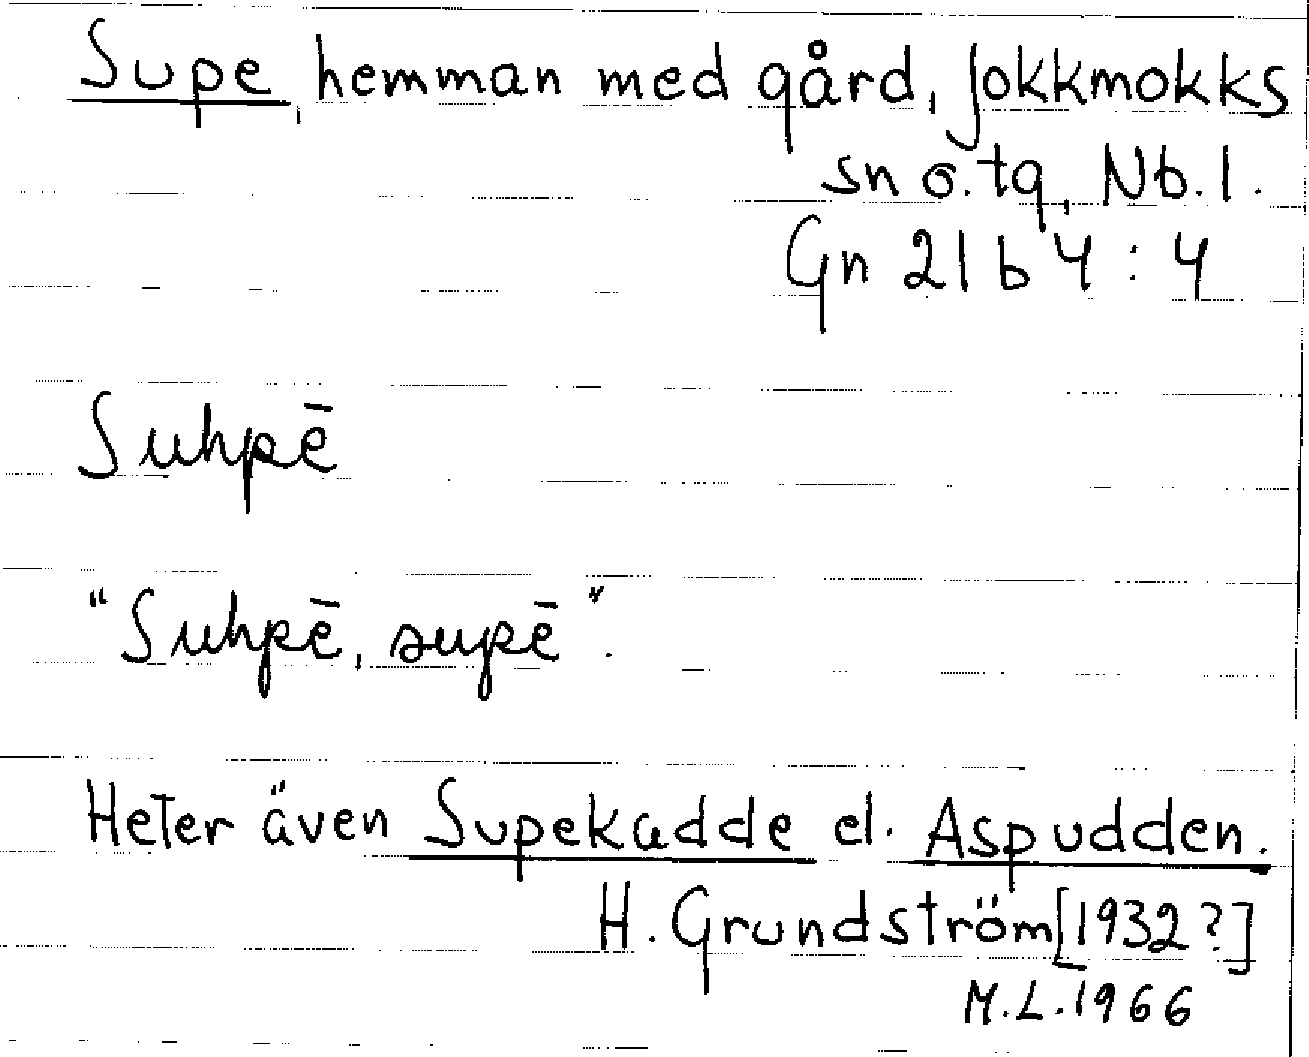 Supe, hemman med gård, Jokkmokks
sn o. tg, Nb. l.
Gn 21 b 4 : 4
Suhpē
"Suhpē, supē".
Heter även Supekadde el. Aspudden.
H. Grundström [1932?]
M.L. 1966